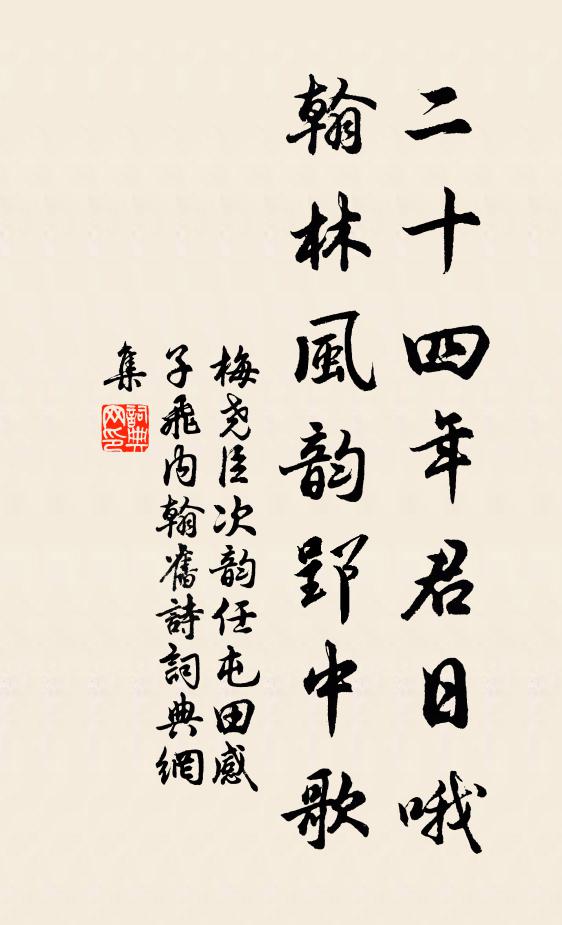 二十四年君日哦
翰林風韵郢中歌
梅尧臣次韵任屯田感
子飛内翰舊詩詞典網
集
詞典网印